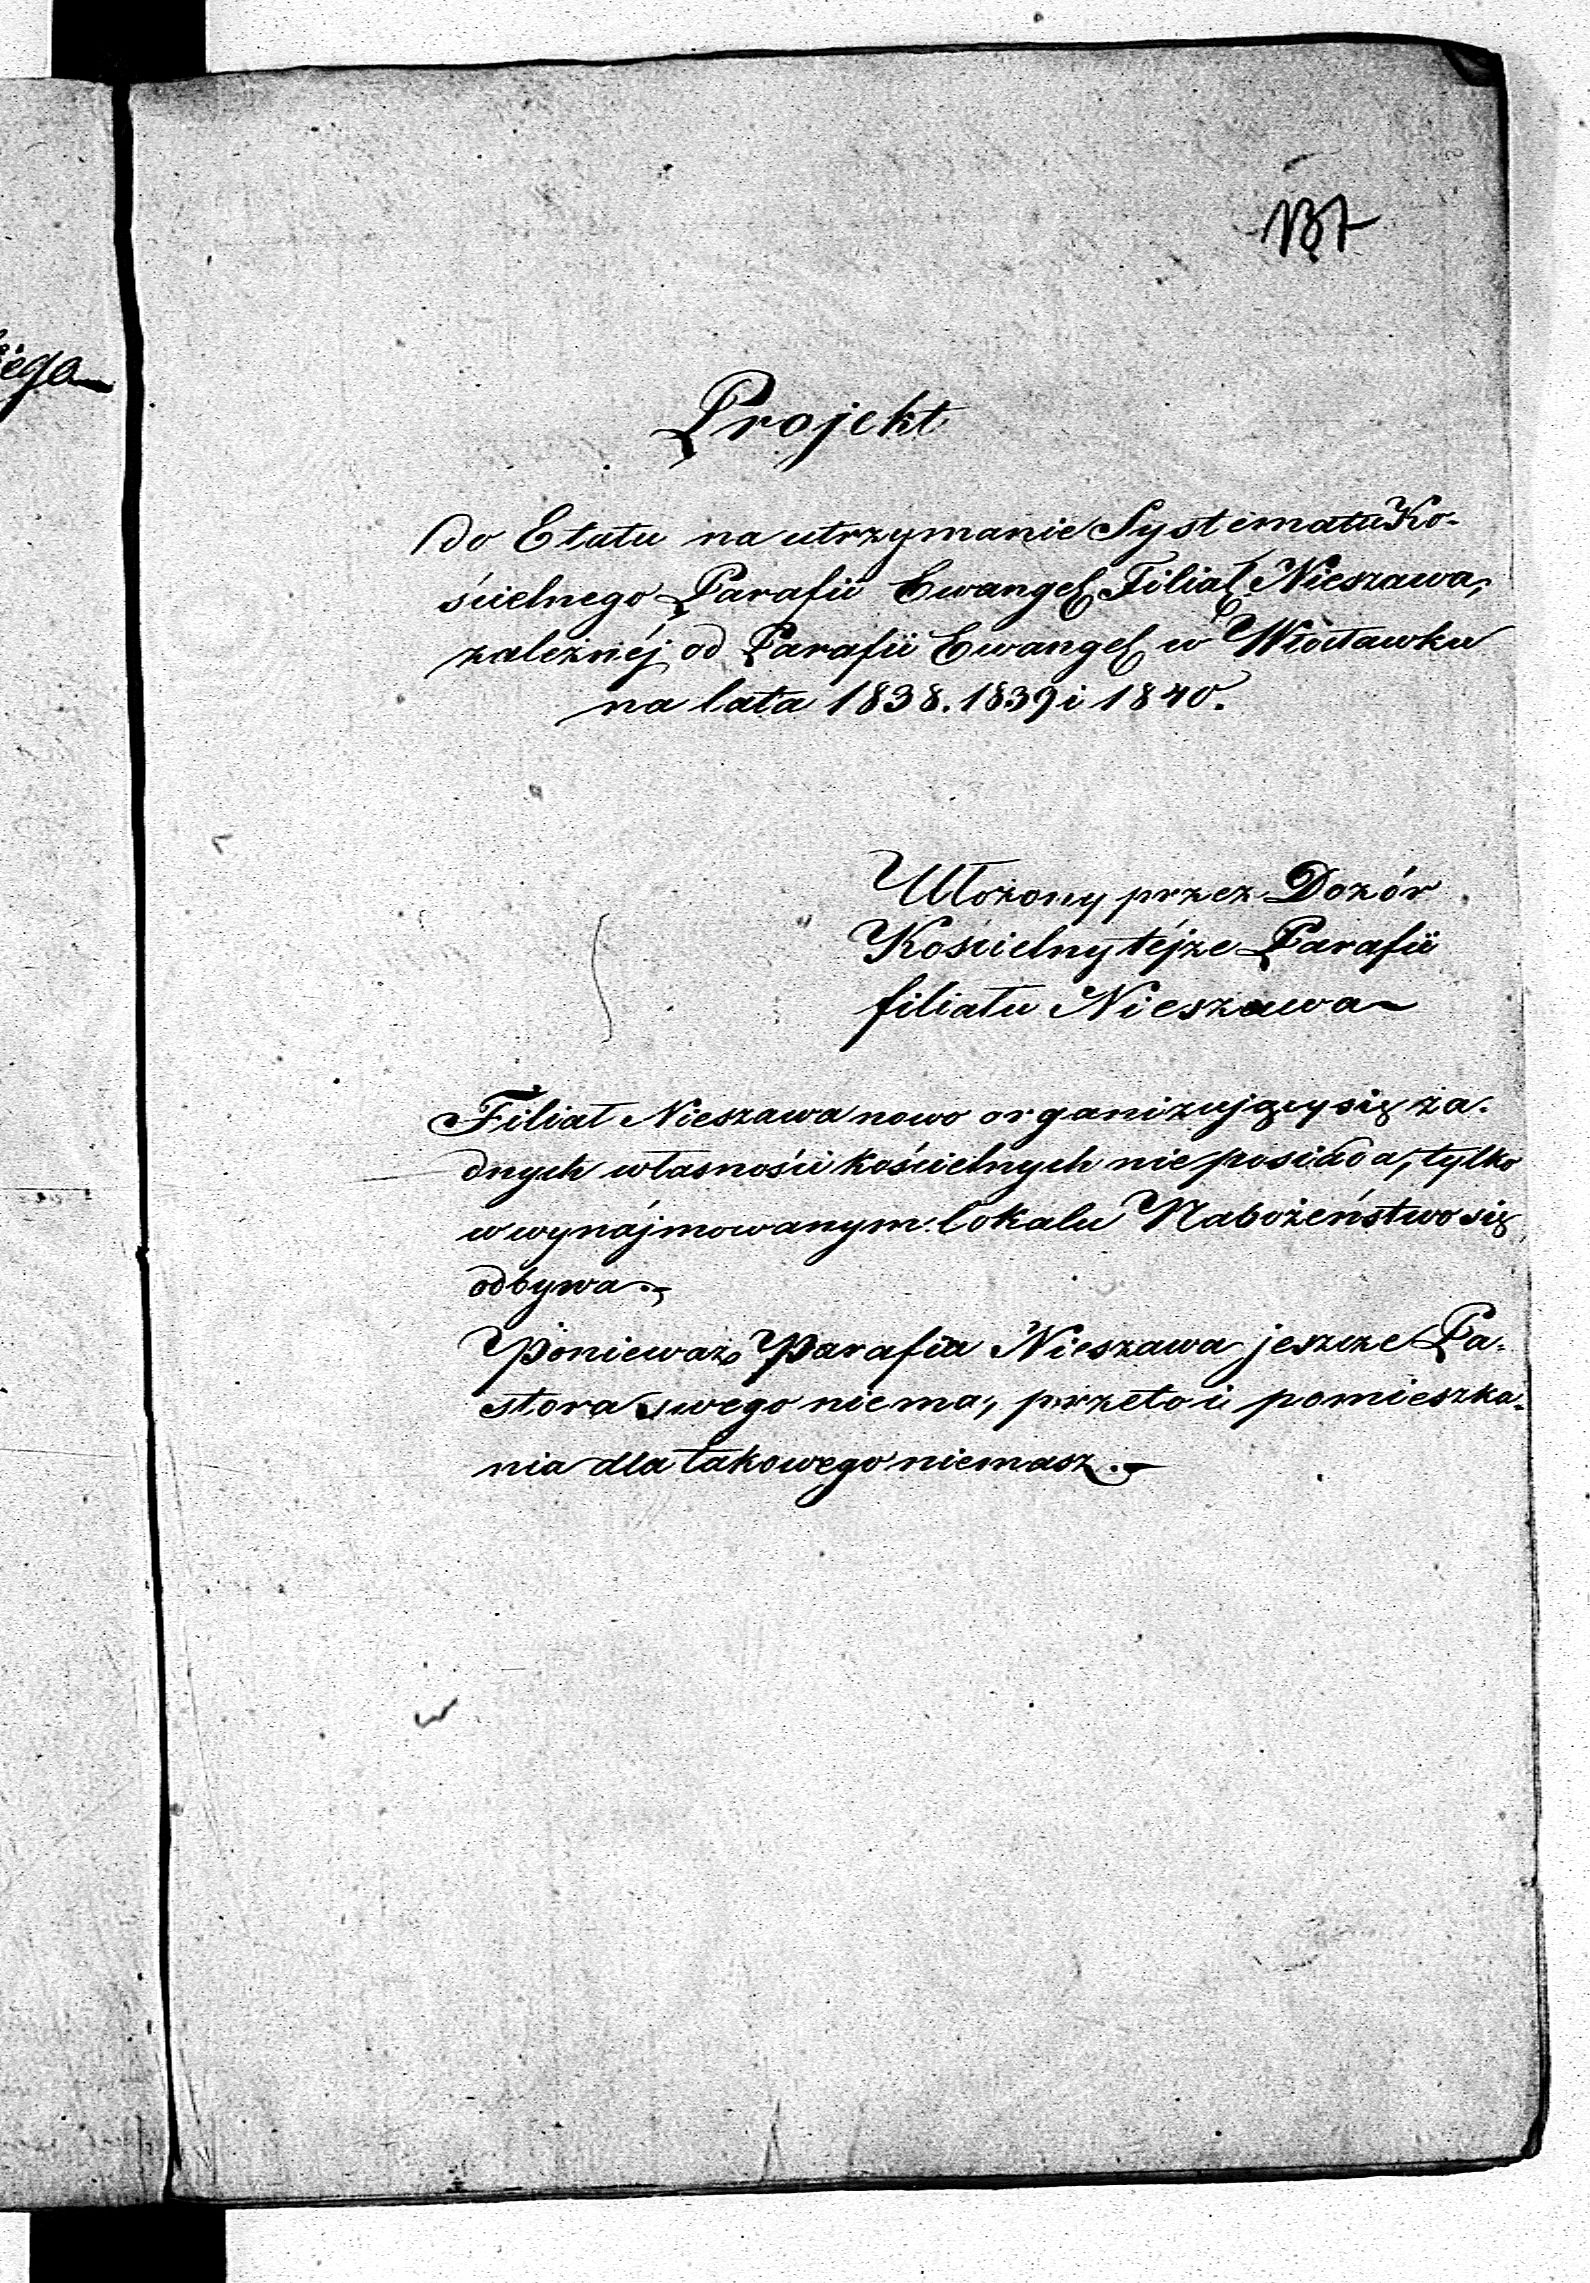 137
Projekt
do Etatu na utrzymanie Systematu Ko-
ścielnego Parafii Ewangel. Filiał Nieszawa,
zależnéj od Parafii Ewangel. w Włocławku
na lata 1838. 1839 i 1840.
Ułożony przez Dozór
Kościelny téjże Parafii
filiału Nieszawa
Filiał Nieszawa nowo organizujący się ża-
dnych własności kościelnych nie posiada, tylko
w wynájmowanym lokalu Nabożeństwo się
odbywa.
Ponieważ Parafia Nieszawa jeszcze Pa-
stora swego niema, przeto i pomieszka-
nia dla takowego niemasz.